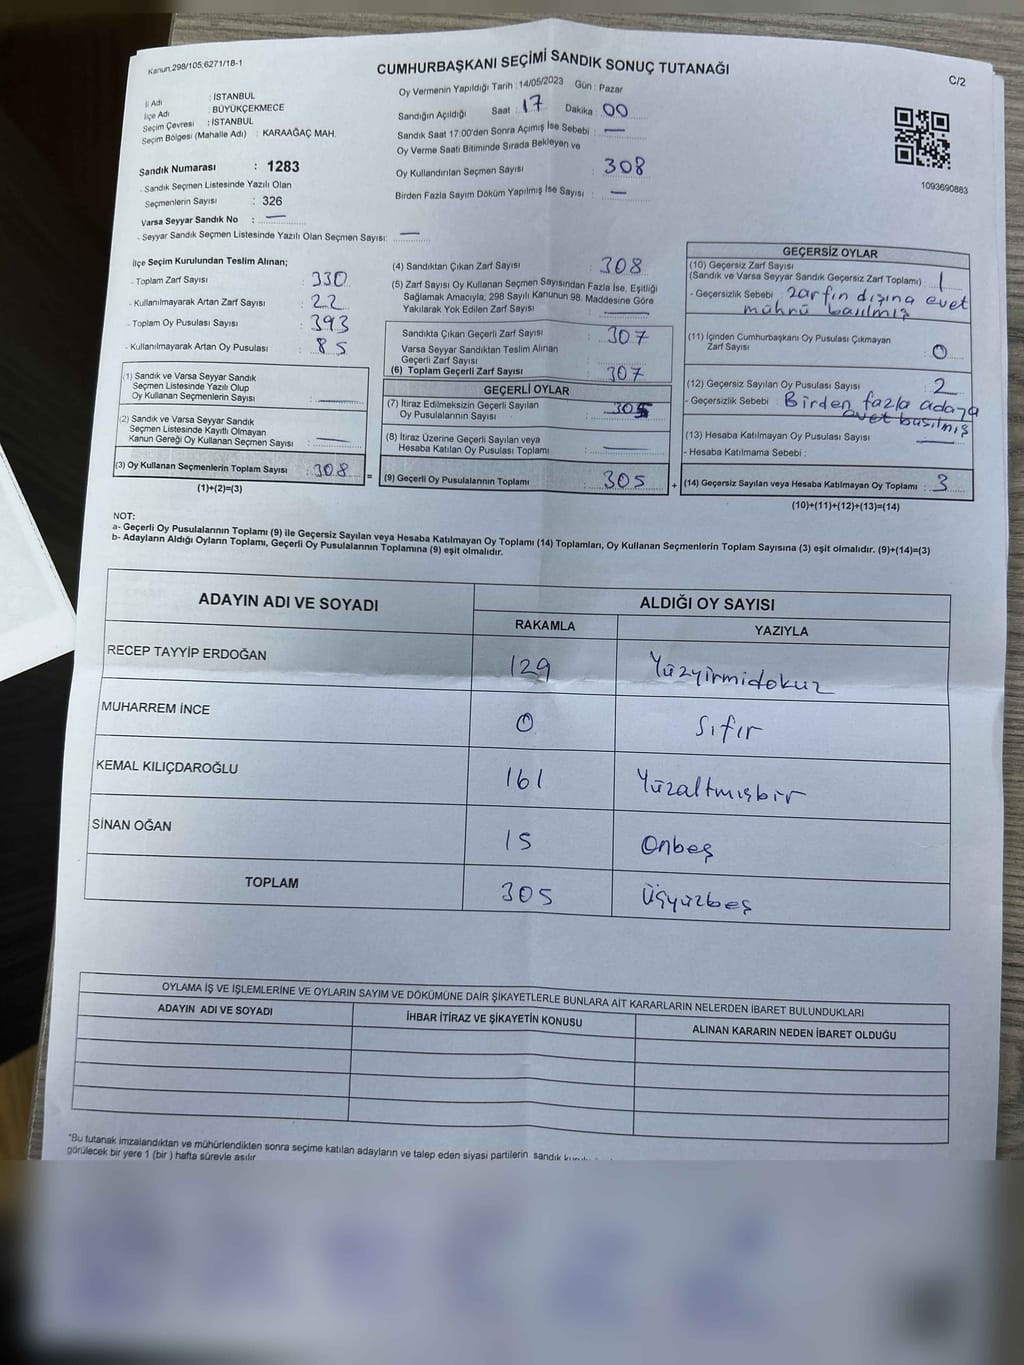 Kanun,298/105,6271/18-1
CUMHURBAŞKANI SEÇİMİ SANDIK SONUÇ TUTANAĞI
C/2
İl Adı : İSTANBUL
İlçe Adı : BÜYÜKÇEKMECE
Seçim Çevresi : İSTANBUL
Seçim Bölgesi (Mahalle Adı) : KARAAĞAÇ MAH.
Sandık Numarası : 1283
- Sandık Seçmen Listesinde Yazılı Olan
Seçmenlerin Sayısı : 326
Varsa Seyyar Sandık No : —
- Seyyar Sandık Seçmen Listesinde Yazılı Olan Seçmen Sayısı: —
Oy Vermenin Yapıldığı Tarih :14/05/2023 Gün : Pazar
Sandığın Açıldığı Saat : 17 Dakika : 00
Sandık Saat 17:00'den Sonra Açımış İse Sebebi : —
Oy Verme Saati Bitiminde Sırada Bekleyen ve
Oy Kullandırılan Seçmen Sayısı : 308
Birden Fazla Sayım Döküm Yapılmış İse Sayısı : —
1093690883
İlçe Seçim Kurulundan Teslim Alınan;
- Toplam Zarf Sayısı : 330
- Kullanılmayarak Artan Zarf Sayısı : 22
- Toplam Oy Pusulası Sayısı : 393
- Kullanılmayarak Artan Oy Pusulası : 85
(1) Sandık ve Varsa Seyyar Sandık
Seçmen Listesinde Yazılı Olup
Oy Kullanan Seçmenlerin Sayısı : —
(2) Sandık ve Varsa Seyyar Sandık
Seçmen Listesinde Kayıtlı Olmayan
Kanun Gereği Oy Kullanan Seçmen Sayısı : —
(3) Oy Kullanan Seçmenlerin Toplam Sayısı : 308 =
(1)+(2)=(3)
(4) Sandıktan Çıkan Zarf Sayısı : 308
(5) Zarf Sayısı Oy Kullanan Seçmen Sayısından Fazla İse, Eşitliği
Sağlamak Amacıyla; 298 Sayılı Kanunun 98. Maddesine Göre
Yakılarak Yok Edilen Zarf Sayısı : —
Sandıkta Çıkan Geçerli Zarf Sayısı : 307
Varsa Seyyar Sandıktan Teslim Alınan
Geçerli Zarf Sayısı :
(6) Toplam Geçerli Zarf Sayısı : 307
GEÇERLİ OYLAR
(7) İtiraz Edilmeksizin Geçerli Sayılan
Oy Pusulalarının Sayısı : 305
(8) İtiraz Üzerine Geçerli Sayılan veya
Hesaba Katılan Oy Pusulası Toplamı : —
(9) Geçerli Oy Pusulalarının Toplamı : 305 +
GEÇERSİZ OYLAR
(10) Geçersiz Zarf Sayısı
(Sandık ve Varsa Seyyar Sandık Geçersiz Zarf Toplamı) : 1
- Geçersizlik Sebebi : zarfın dışına evet
mührü basılmış
(11) İçinden Cumhurbaşkanı Oy Pusulası Çıkmayan
Zarf Sayısı : 0
(12) Geçersiz Sayılan Oy Pusulası Sayısı : 2
- Geçersizlik Sebebi : Birden fazla adaya
evet basılmış
(13) Hesaba Katılmayan Oy Pusulası Sayısı : —
- Hesaba Katılmama Sebebi :
(14) Geçersiz Sayılan veya Hesaba Katılmayan Oy Toplamı : 3
(10)+(11)+(12)+(13)=(14)
NOT:
a- Geçerli Oy Pusulalarının Toplamı (9) ile Geçersiz Sayılan veya Hesaba Katılmayan Oy Toplamı (14) Toplamları, Oy Kullanan Seçmenlerin Toplam Sayısına (3) eşit olmalıdır. (9)+(14)=(3)
b- Adayların Aldığı Oyların Toplamı, Geçerli Oy Pusulalarının Toplamına (9) eşit olmalıdır.
ADAYIN ADI VE SOYADI ALDIĞI OY SAYISI
RAKAMLA YAZIYLA
RECEP TAYYİP ERDOĞAN 129 Yüzyirmidokuz
MUHARREM İNCE 0 Sıfır
KEMAL KILIÇDAROĞLU 161 Yüzaltmışbir
SİNAN OĞAN 15 Onbeş
TOPLAM 305 Üçyüzbeş
OYLAMA İŞ VE İŞLEMLERİNE VE OYLARIN SAYIM VE DÖKÜMÜNE DAİR ŞİKAYETLERLE BUNLARA AİT KARARLARIN NELERDEN İBARET BULUNDUKLARI
ADAYIN ADI VE SOYADI İHBAR İTİRAZ VE ŞİKAYETİN KONUSU ALINAN KARARIN NEDEN İBARET OLDUĞU
*Bu tutanak imzalandıktan ve mühürlendikten sonra seçime katılan adayların ve talep eden siyasi partilerin sandık
görülecek bir yere 1 (bir ) hafta süreyle asılır